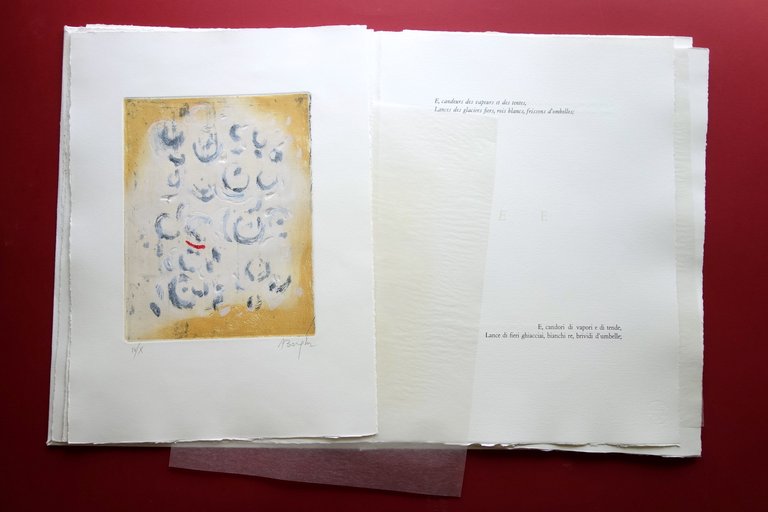 IV/X
E, candeurs des vapeurs et des tentes,
Lances des glaciers fiers, rois blancs, frissons d'umbelles;
E E
E, candori di vapori e di tende,
Lance di fieri ghiacciai, bianchi re, brividi d'umbelle;